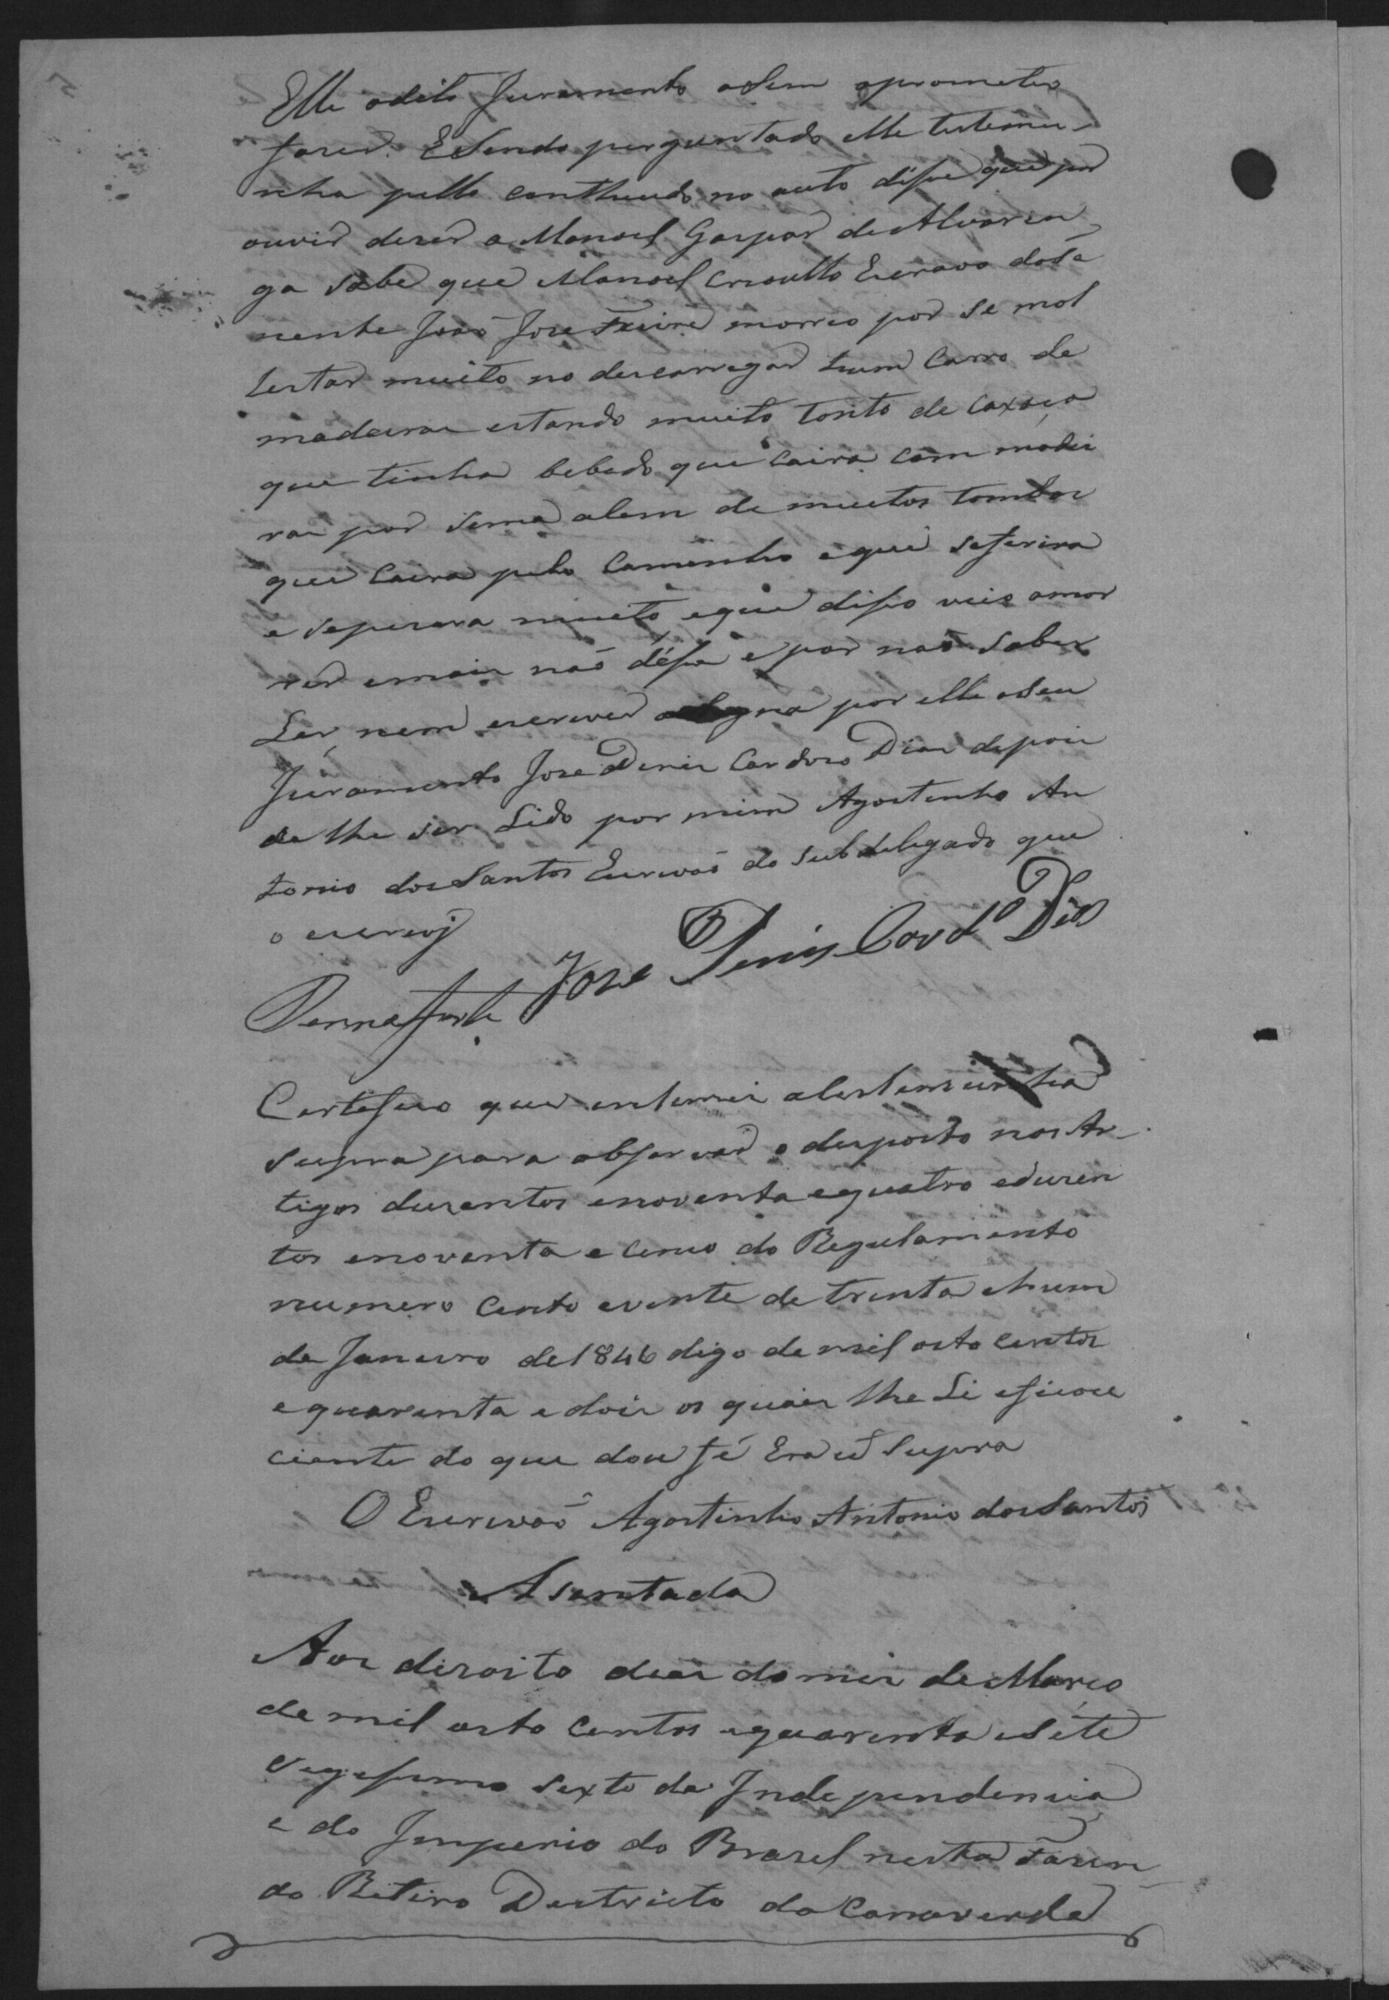 Elle odito Juramento asim oprometeo
fazer. ESendo perguntado elle testemu-
nha pello conthiudo no auto disse que por
ouvir dizer a Manoel Gaspar de Alvaren
ga sabe que Manoel Crioullo Escravo do fa
nente João Jose Freire morreo por se mol
lestar muito no descarregar hum Carro de
madeiras estando muito tonto de caxaça
que tinha bebedo que caira com madei
ras por sima alem de muitos tombos
que caira pelo Caminho eque seferira
e sepizara muito eque disso veio amor
rer emais não disse e por não saber
Ler nem escrever asigna por elle oseu
Juramento Jose Diniz Cardozo Dias depois
de lhe ser Lido por mim Agostinho An
tonio dos Santos Escrivaõ do subdelegado que
o escrevj
Jose Diniz Cardº Dias
Pennaforte
Certefico que intemei atestemunha
supra para observar o desposto nos Ar-
tigos duzentos enoventa equatro eduzen
tos enoventa e cinco do Regulamento
numero Cento evinte de trinta ehum
de Janeiro de 1846 digo de mil oito centos
e quarenta e dois os quais lhe Li eficou
ciente do que dou fé Era ut Supra
O Escrivaõ Agostinho Antonio dos Santos
Asentada
Aos dezoito dias do mez de Março
de mil oito centos equarenta esete
vigessimo sexto da Independencia
e do Imperio do Brazil nesta Fazen
da Retiro Destricto da Cannaverde